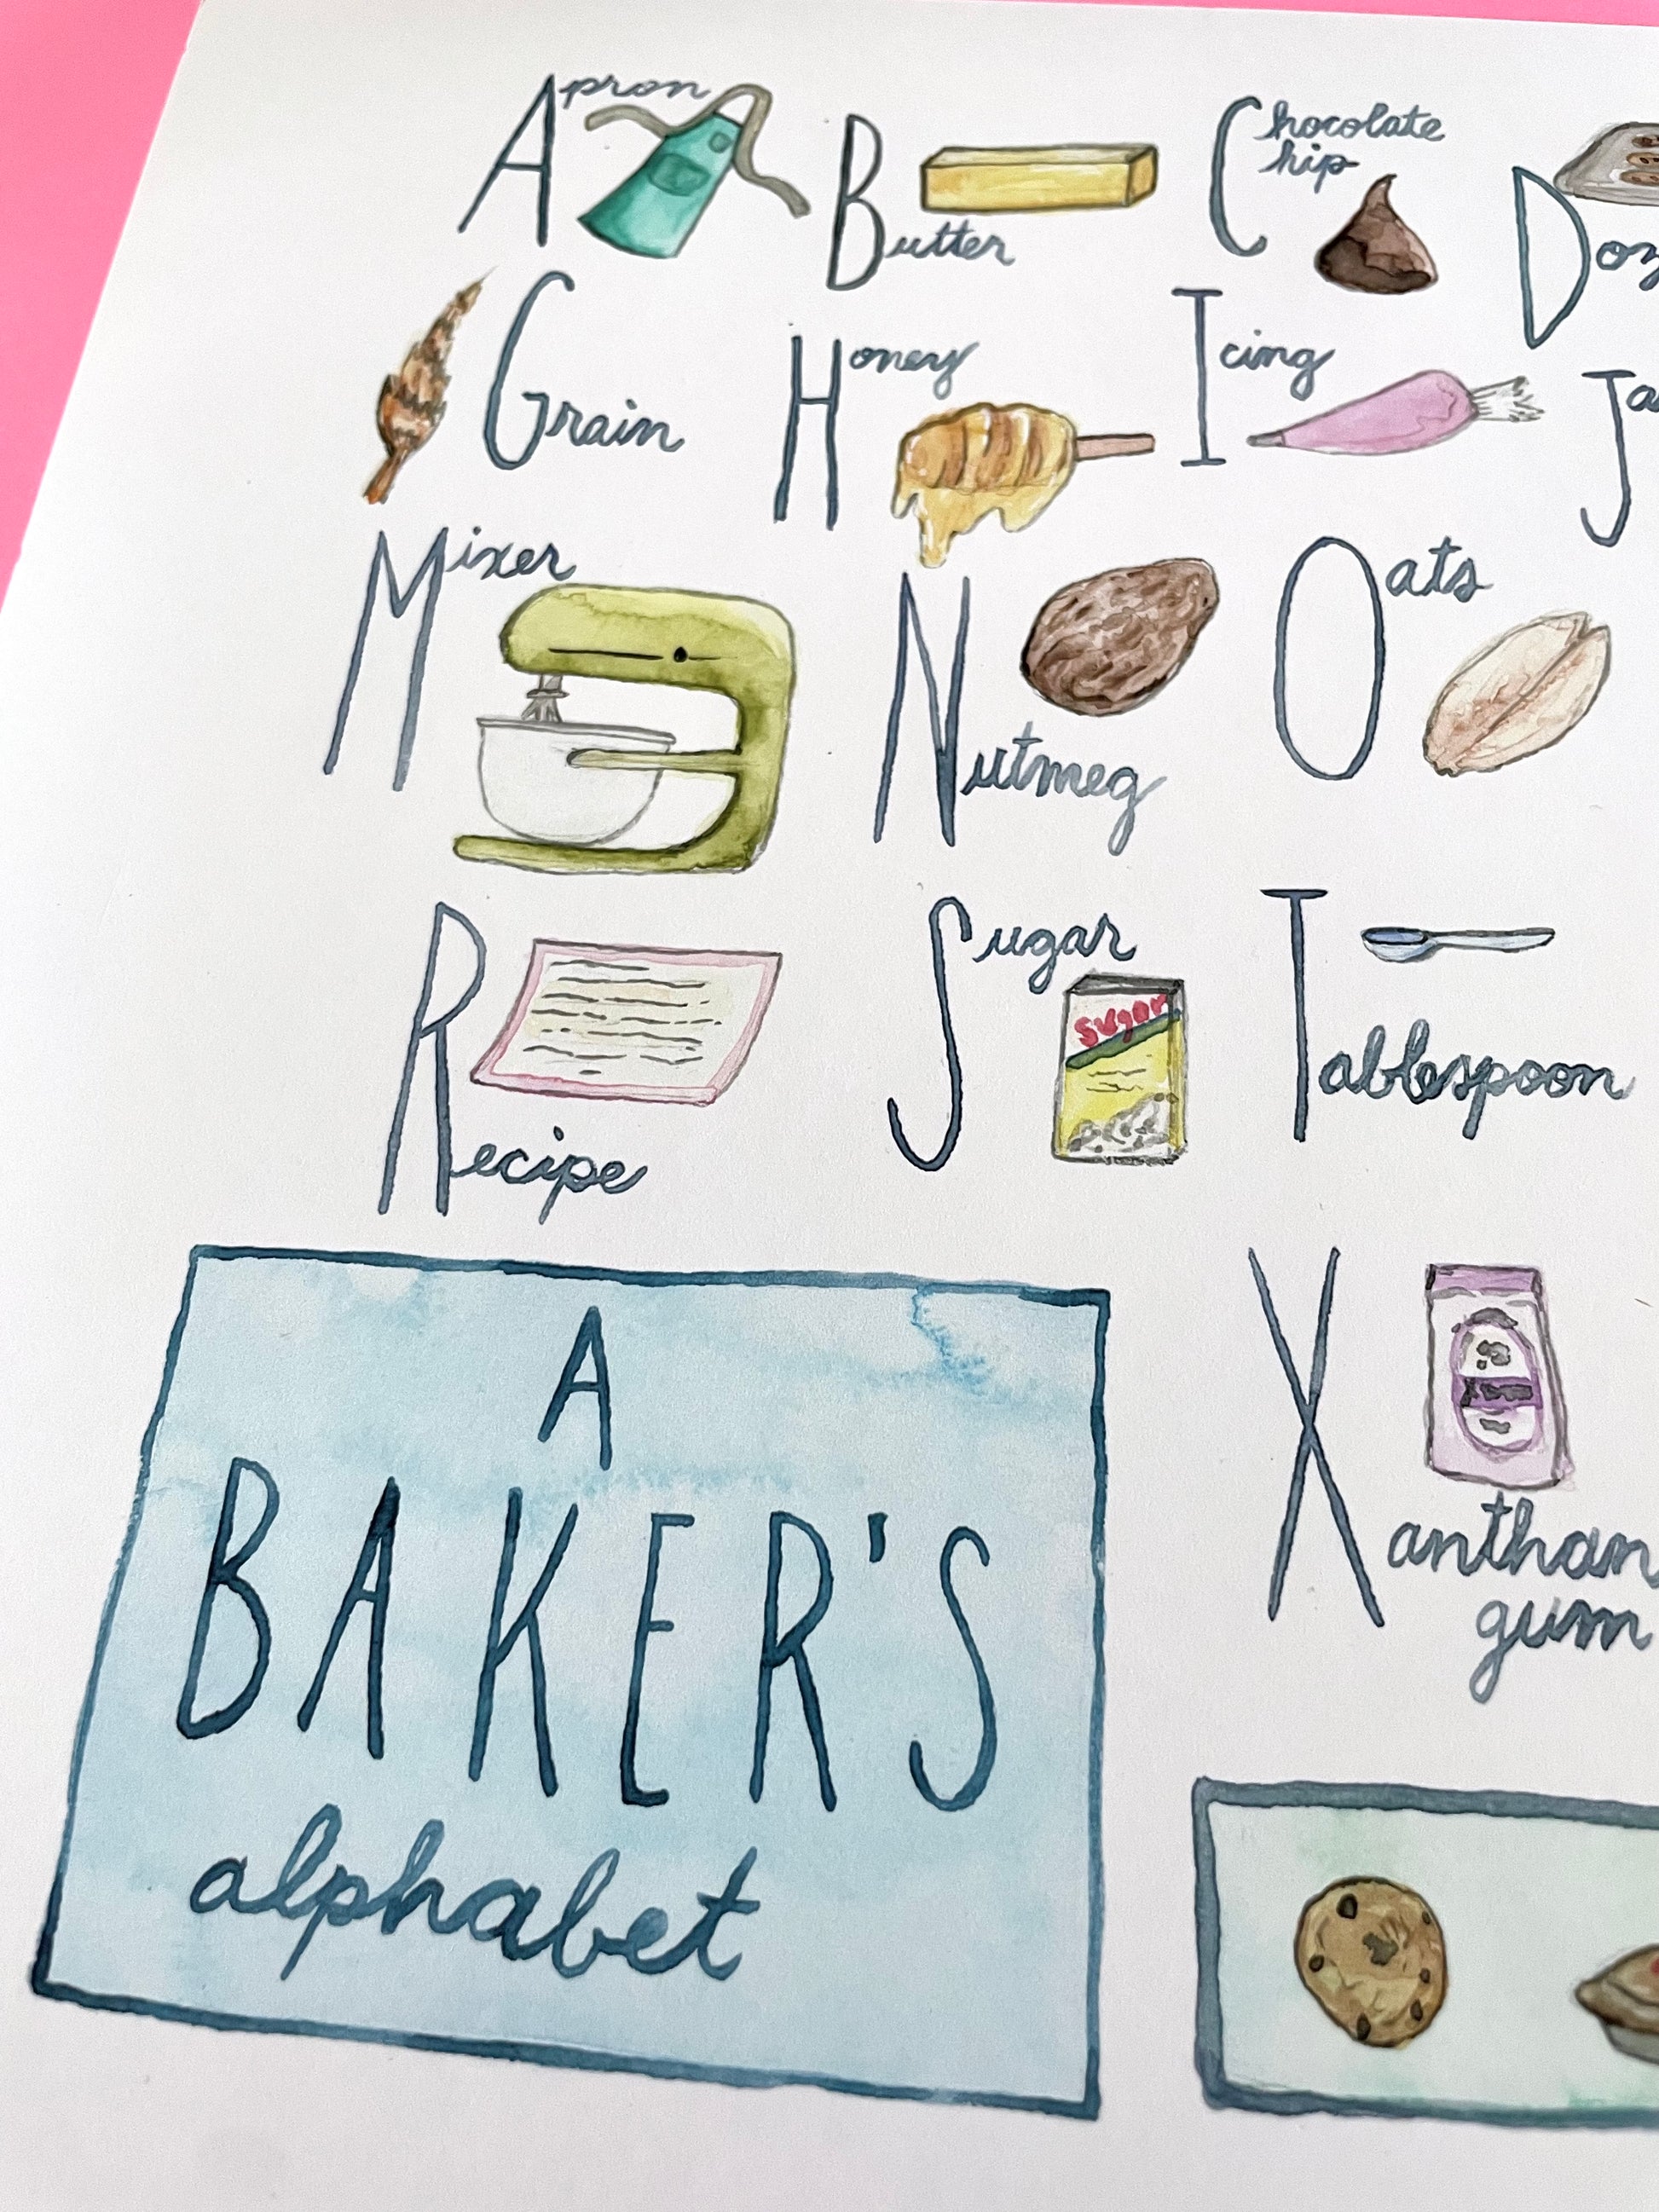 Apron
Butter
Chocolate
hip
Doz
Grain
Honey
Icing
Ja
Mixer
Nutmeg
Oats
Recipe
Sugar
Sugar
Tablespoon
Xanthan
gum
A
BAKER'S
alphabet